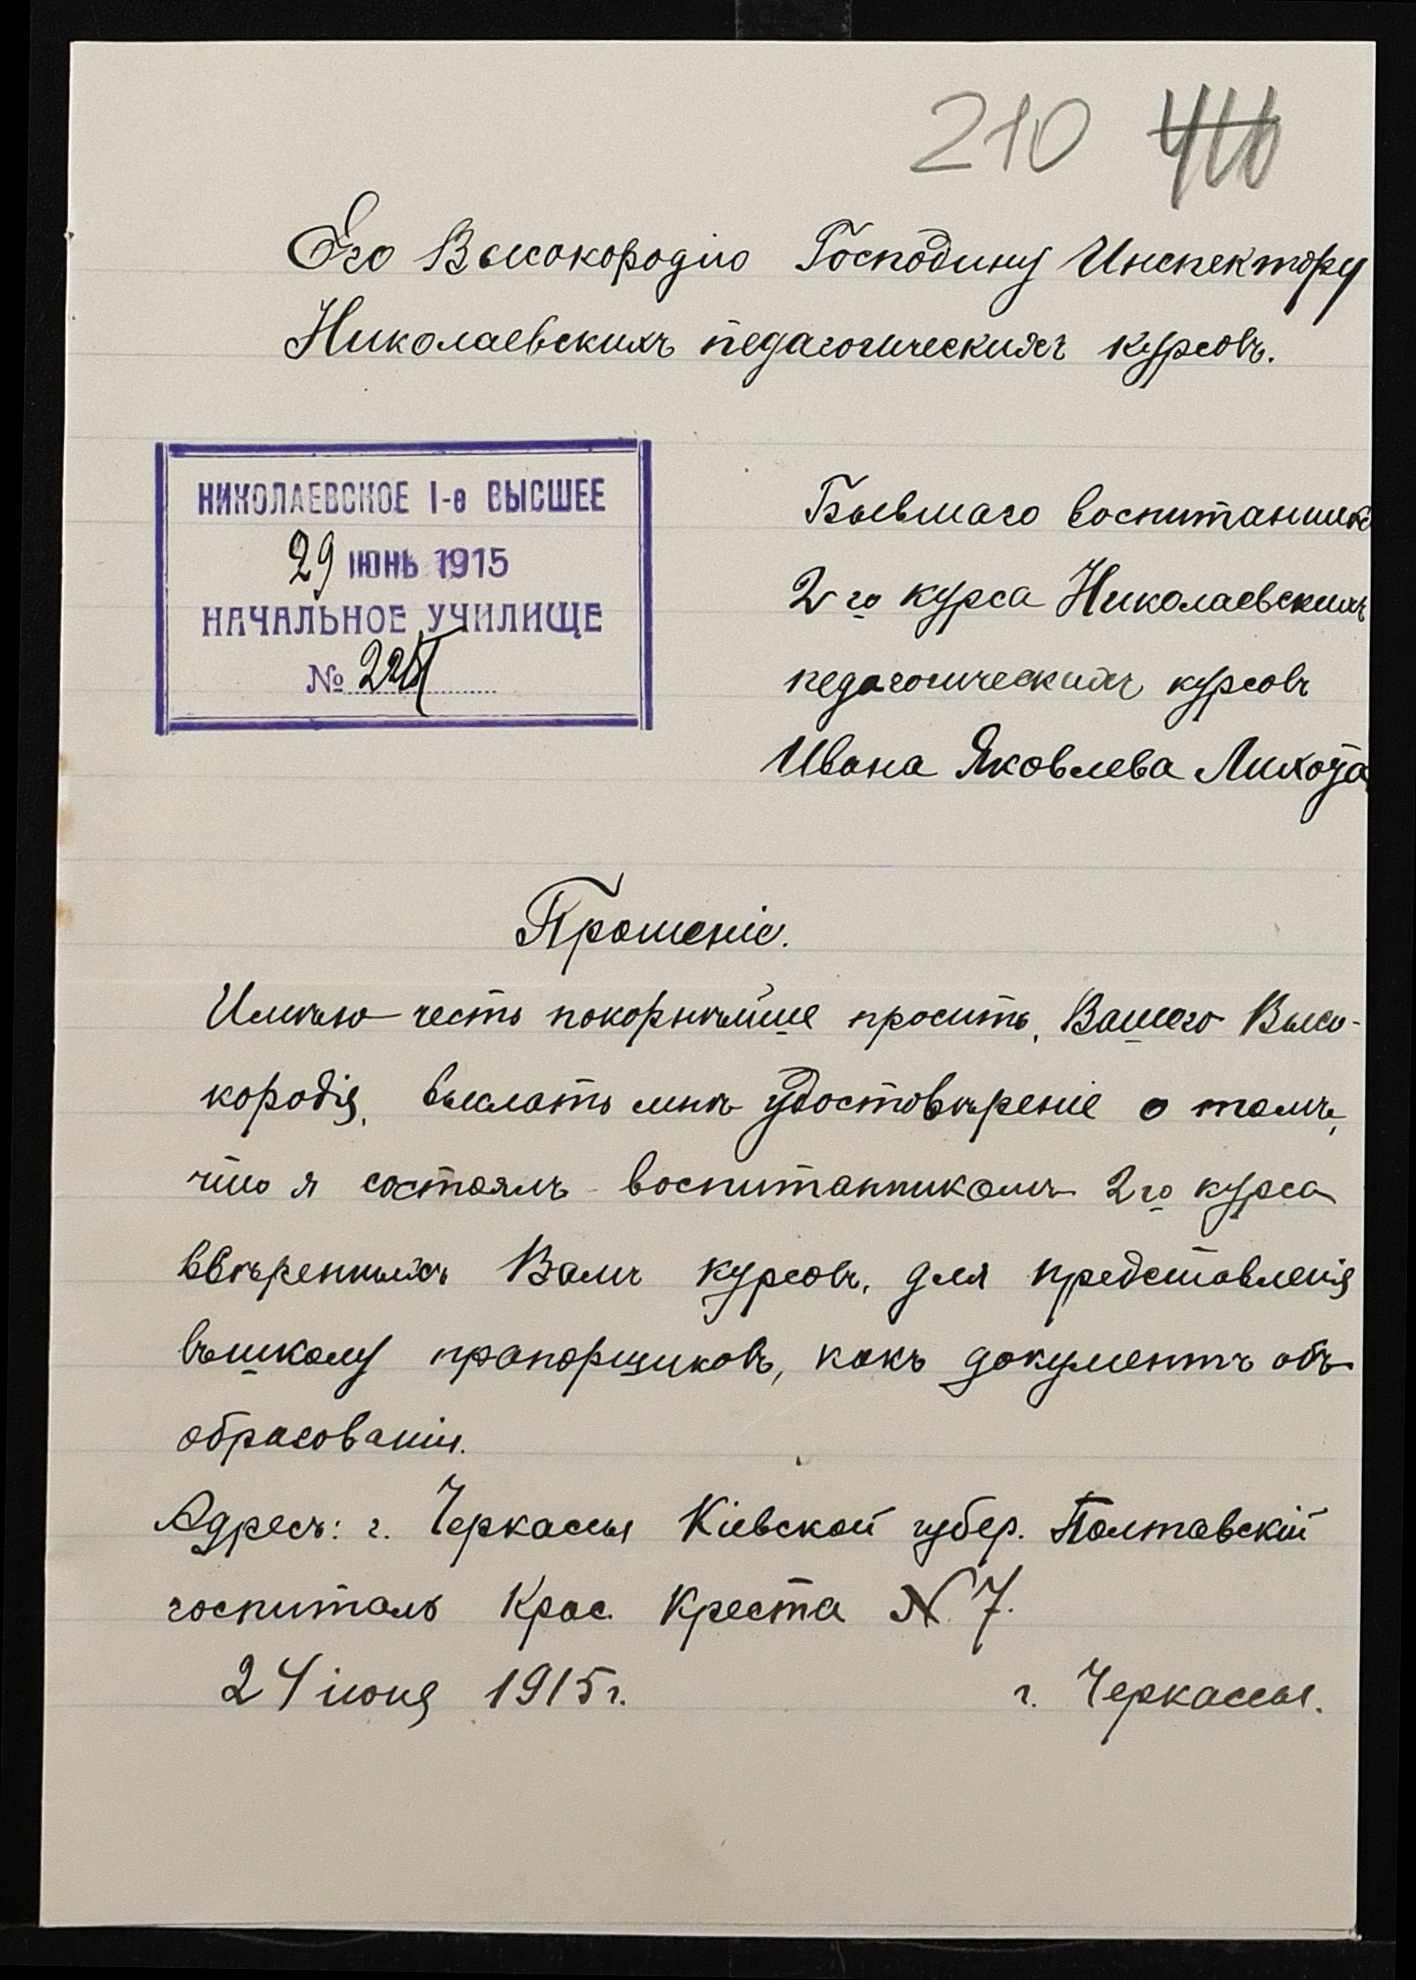 210
Его Высокородію Господину Инспектору
Николаевскихъ педагогическихъ курсовъ.
НИКОЛАЕВСКОЕ I-е ВЫСШЕЕ
29 ІЮНЬ 1915
НАЧАЛЬНОЕ УЧИЛИЩЕ
№
Бывшаго воспитанника
2го курса Николаевскихъ
педагогическихъ курсовъ
Ивана Яковлева Лихота
Прошеніе.
Имѣю честь покорнѣйше просить, Вашего Высо-
кородія, выслать мнѣ удостовѣреніе о томъ,
что я состоялъ воспитанникомъ 2го курса
ввѣренныхъ Вамъ курсовъ, для представленія
въ школу прапорщиковъ, какъ документъ объ
образованіи.
Адресъ: г. Черкассы Кіевской губер. Полтавскій
госпиталь Крас. Креста N 7.
24 іюня 1915 г.
г. Черкассы.